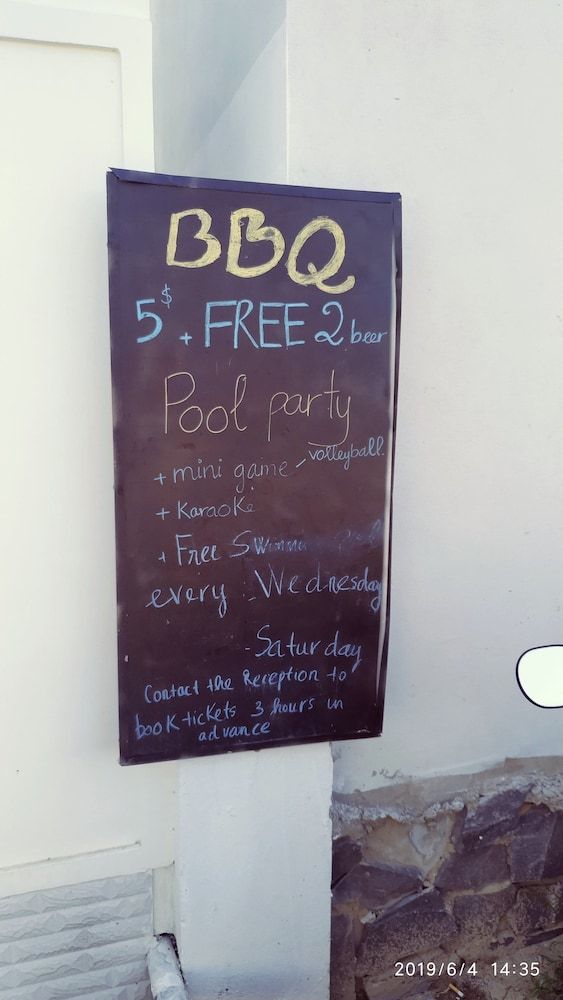 BBQ
5$ + FREE 2 beer
Pool party
+ mini game - volleyball.
+ Karaoke
+ Free
every - Wednesday
- Saturday
Contact the Reception to
book tickets 3 hours in
advance
2019/6/4 14:35